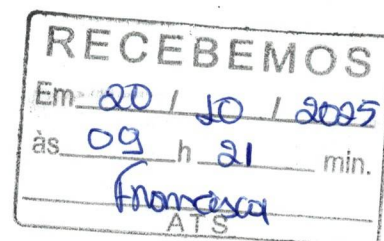 RECEBEMOS
Em 20 / 10 / 2025
às 09 h 21 min.
Francisca
ATS